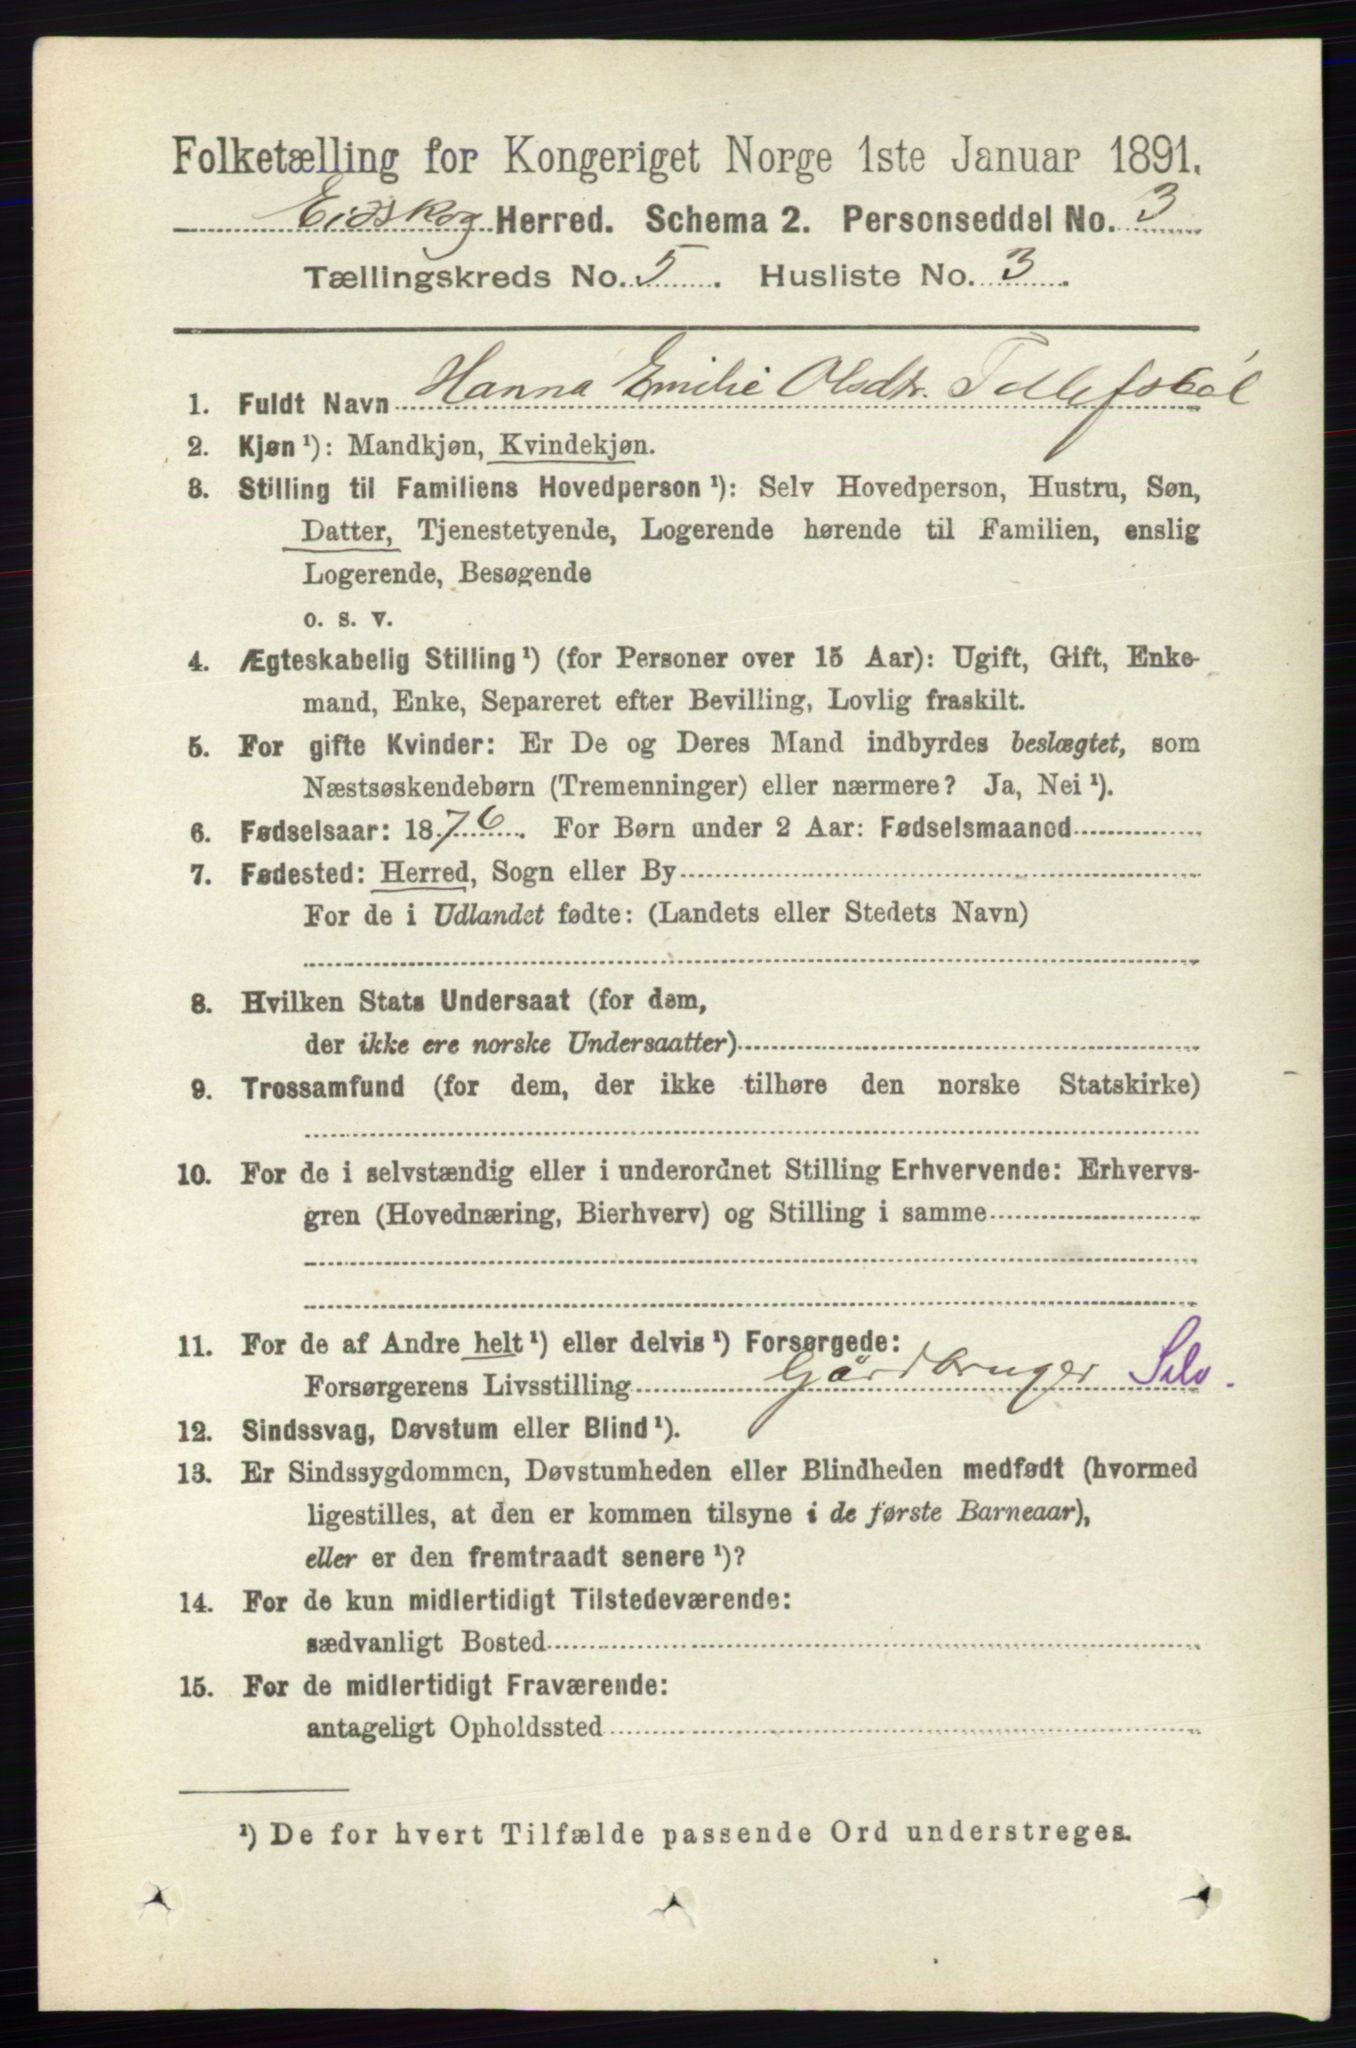 Folketælling for Kongeriget Norge 1ste Januar 1891.
Eidskog Herred. Schema 2. Personseddel No. 3
Tællingskreds No. 5. Husliste No. 3.
1. Fuldt Navn Hanna Emilie Olsdtr. Tollefsbøl
2. Kjøn ¹): Mandkjøn, Kvindekjøn.
3. Stilling til Familiens Hovedperson ¹): Selv Hovedperson, Hustru, Søn,
Datter, Tjenestetyende, Logerende hørende til Familien, enslig
Logerende, Besøgende
o. s. v.
4. Ægteskabelig Stilling ¹) (for Personer over 15 Aar): Ugift, Gift, Enke-
mand, Enke, Separeret efter Bevilling, Lovlig fraskilt.
5. For gifte Kvinder: Er De og Deres Mand indbyrdes beslægtet, som
Næstsøskendebørn (Tremenninger) eller nærmere? Ja, Nei ¹).
6. Fødselsaar: 1876. For Børn under 2 Aar: Fødselsmaaned
7. Fødested: Herred, Sogn eller By
For de i Udlandet fødte: (Landets eller Stedets Navn)
8. Hvilken Stats Undersaat (for dem,
der ikke ere norske Undersaatter)
9. Trossamfund (for dem, der ikke tilhøre den norske Statskirke)
10. For de i selvstændig eller i underordnet Stilling Erhvervende: Erhvervs-
gren (Hovednæring, Bierhverv) og Stilling i samme
11. For de af Andre helt ¹) eller delvis ¹) Forsørgede:
Forsørgerens Livsstilling Gårdbruger Selv.
12. Sindssvag, Døvstum eller Blind ¹).
13. Er Sindssygdommen, Døvstumheden eller Blindheden medfødt (hvormed
ligestilles, at den er kommen tilsyne i de første Barneaar),
eller er den fremtraadt senere ¹)?
14. For de kun midlertidigt Tilstedeværende:
sædvanligt Bosted
15. For de midlertidigt Fraværende:
antageligt Opholdssted
¹) De for hvert Tilfælde passende Ord understreges.